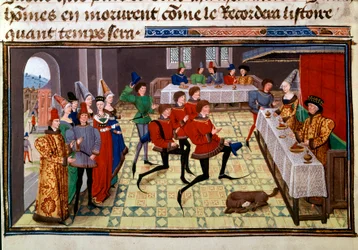 hõmes en morurent cõme le Recordera listoire
quant temps sera.